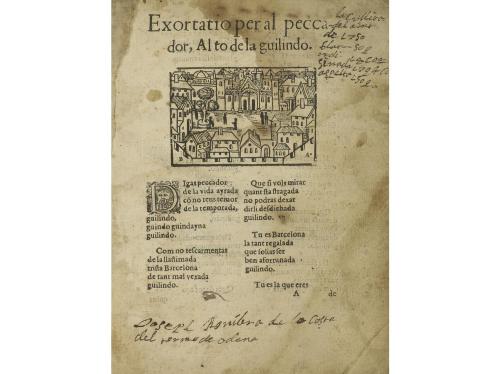 Exortatio per al pecca
dor, Al to de la guilindo.
la
de 1750
DIgas peccador
de la vida ayrada
cõ no tens temor
de la temporada,
guilindo,
guindo guindayna
guilindo.
Com no tescarmentas
de la llastimada
trista Barcelona
de tant mal vexada
guilindo.
Que si vols mirar
quant sta stragada
no podras dexar
dirli desdichada
guilindo.
Tu es Barcelona
la tant regalada
que solias ser
ben afortunada
guilindo.
Tu es la que eres
A de
Joseph Rovibera de la Costa
del terme de odena